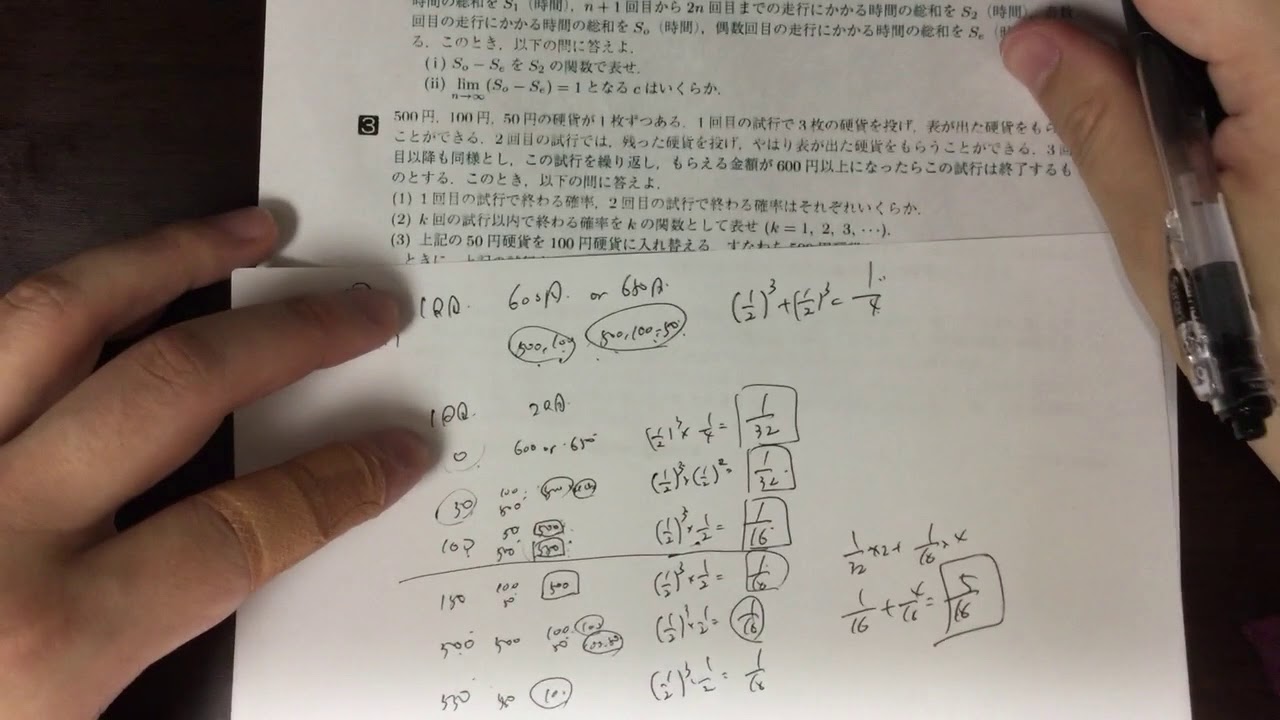 時間の総和を S₁ (時間), n+1回目から 2n 回目までの走行にかかる時間の総和を S₂ (時間),
回目の走行にかかる時間の総和を Sₒ (時間), 偶数回目の走行にかかる時間の総和を Sₑ
る. このとき, 以下の問に答えよ.
(i) Sₒ − Sₑ を S₂ の関数で表せ.
(ii) lim n→∞ (Sₒ − Sₑ) = 1 となる c はいくらか.
3 500円, 100円, 50円の硬貨が1枚ずつある. 1回目の試行で3枚の硬貨を投げ, 表が出た硬貨をもら
ことができる. 2回目の試行では, 残った硬貨を投げ, やはり表が出た硬貨をもらうことができる. 3回
目以降も同様とし, この試行を繰り返し, もらえる金額が600円以上になったらこの試行は終了するも
のとする. このとき, 以下の問に答えよ.
(1) 1回目の試行で終わる確率, 2回目の試行で終わる確率はそれぞれいくらか.
(2) k回の試行以内で終わる確率をkの関数として表せ (k = 1, 2, 3, ⋯).
(3) 上記の50円硬貨を100円硬貨に入れ替える.
1回目. 600円. or 650円. (1/2)³+(1/2)³= 1/4
500,100 500,100,50
1回目. 2回目.
0 600 or 650 (1/2)³× 1/4 = 1/32
50 100 500 (1/2)³×(1/2)²= 1/32
50 500
100 500 (1/2)³×1/2= 1/16
1/32×2+ 1/16×4
150 100 50 500 (1/2)³×1/2= 1/16
1/16+4/16= 5/16
500 100 50 (1/2)³×1/2= 1/16
550 (1/2)³×1/2= 1/16